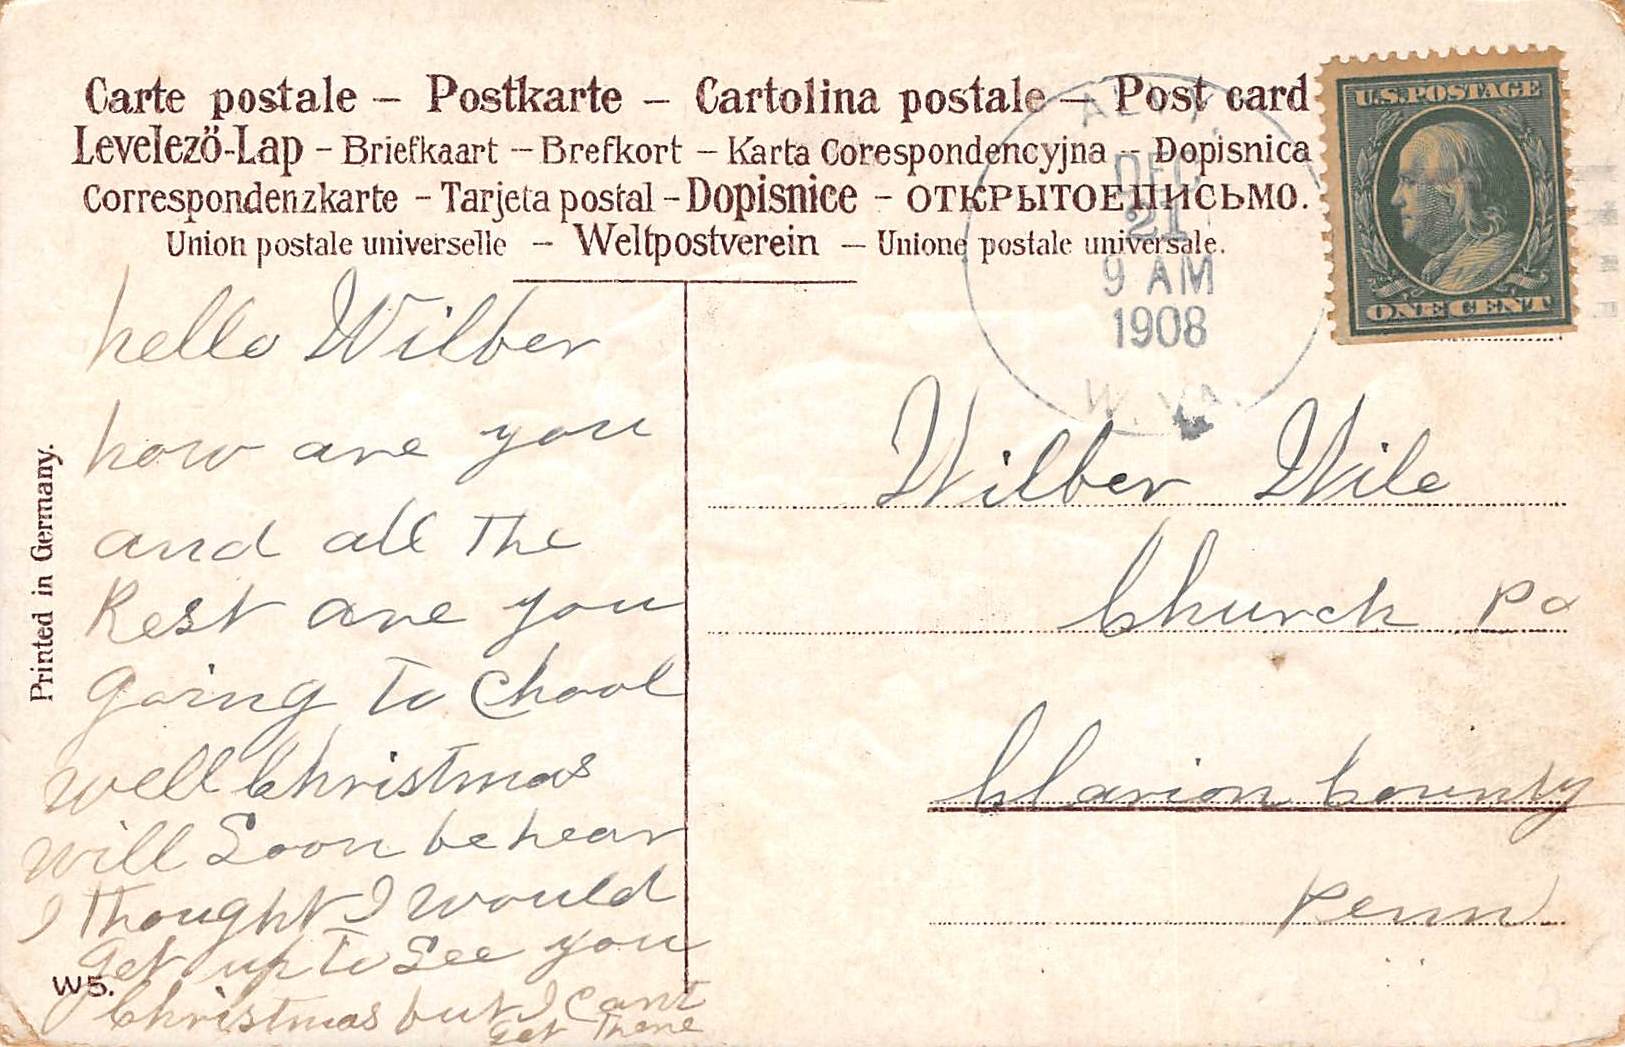 Carte postale – Postkarte – Cartolina postale – Post card
Levelező-Lap – Briefkaart – Brefkort – Karta Corespondencyjna – Dopisnica
Correspondenzkarte – Tarjeta postal – Dopisnice – ОТКРЫТОЕПИСЬМО.
Union postale universelle – Weltpostverein – Unione postale universale.
U.S. POSTAGE
ONE CENT
DEC
21
9 AM
1908
W. VA.
Printed in Germany.
hello Wilber
how are you
and all the
Rest are you
going to Chool
well Christmas
will Soon be hear
I thought I would
get up to See you
Christmas but I Cant
get there
W5.
Wilber Wile
Church Pa
Clarion County
Penn